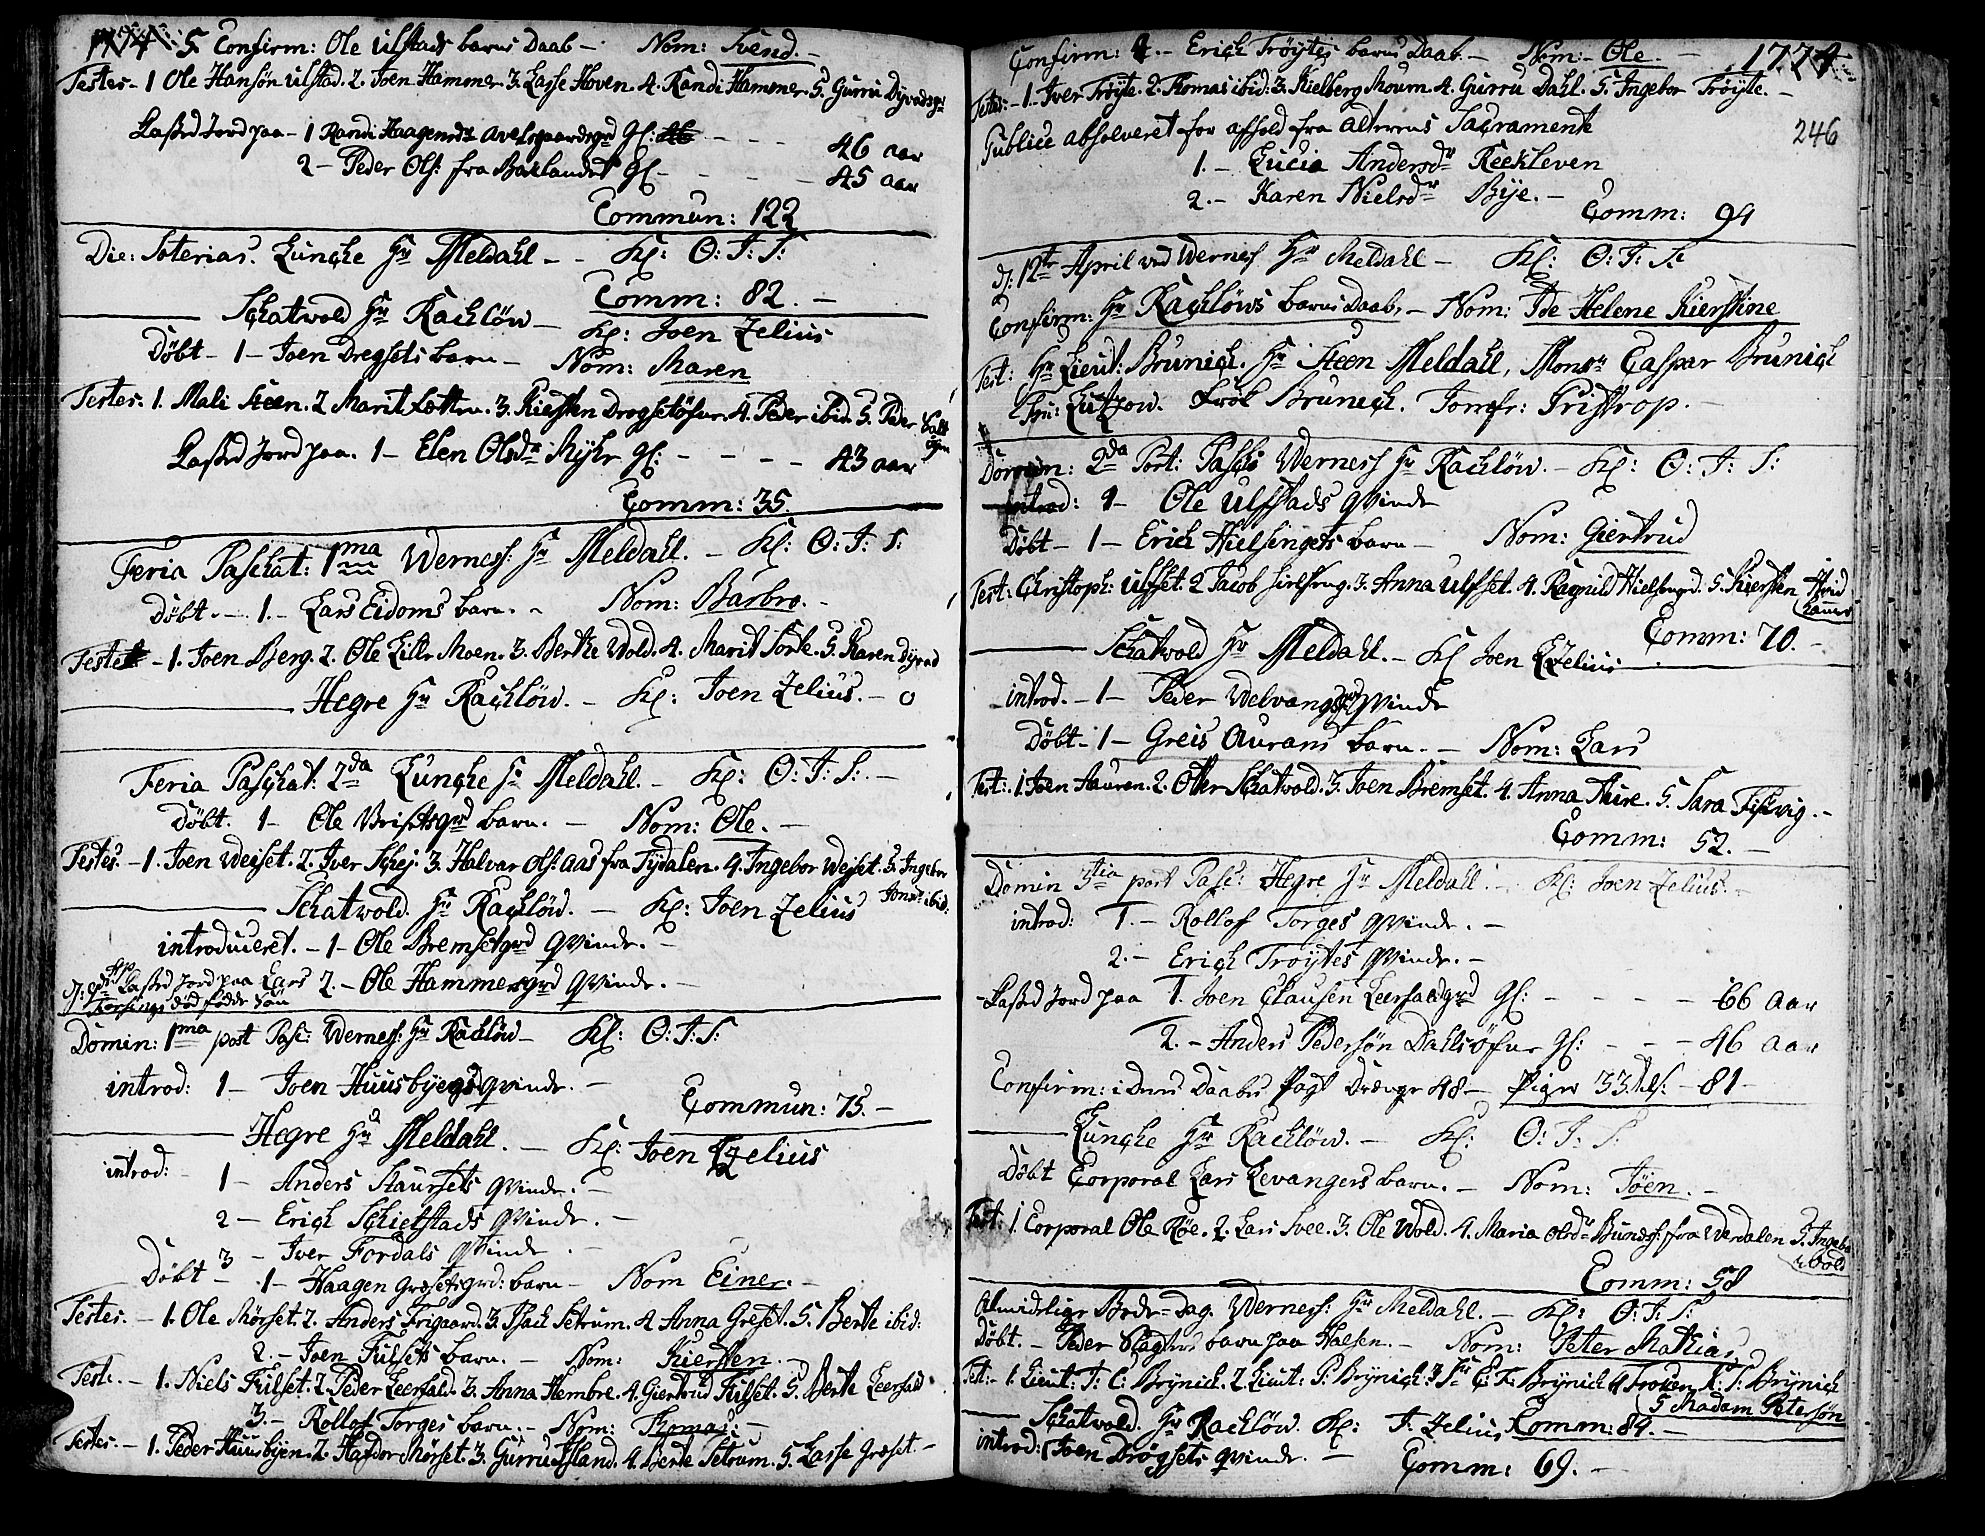 1774 5 Confirm: Ole Ulstads barns Daab – Nom: Svend. –
Testes – 1 Ole Hansøn Ulstad. 2. Joen Hammer. 3. Lasse Hoven. 4. Randi Hammer. 5. Gurru
Kasted Jord paa – 1 Randi Haagensdr Gl: – – – 46 aar
2 – Peder Ols: fra Baklandet Gl – – – – 45 aar
Commun: 122
Die: Soterias. Lunche Hr Meldahl – – Kl: O: J: S:
Comm: 82. –
Schatwold Hr Rachlöw – Kl: Joen Zelius
Døbt – 1 – Joen Dregsets barn – Nom: Maren
Testes. 1. Mali Steen. 2 Marit 3. Kiersten 4. Peder ibid. 5. Peder
Kasted Jord paa. 1 – Elen Olsdr Myhr gl: – – – – 43 aar
Comm: 35.
Feria Paschat: 1ma Wernes: Hr Meldahl. – Kl: O: J: S:
Døbt. – 1. – Lars Eidoms barn. – Nom: Barbro. –
Testes – 1. Joen Berg. 2. Ole Lille Moen. 3. Berthe Wold. 4. Marit Storke. 5. Karen
Hegre Hr Rachlöw. – Kl: Joen Zelius. – 0
Feria Paschat: 2da Lunche Hr Meldahl. – Kl: O: J: S: –
Døbt. 1 – Ole barn. – Nom: Ole. –
Testes. – 1. Joen Weiset. 2. Iver Schej. 3. Halvar Ols: Aas fra Tydalen. 4. Ingebor Weiset. 5. Ingebor
Jonsdr ibid:
Schatwold. Hr Rachlöw. – Kl: Joen Zelius
introduceret. – 1 – Ole Bremsetgrd Qvinde. –
2. – Ole Hammersgrd Qvinde. –
Kasted Jord paa Lars
dødfødde Søn
Domin: 1ma post Pasc: Wernes: Hr Rachlöw – Kl: O: J: S:
introd: 1 – Joen Huusbyegrd qvinde. –
Commun: 75. –
Hegre Hr Meldahl. – Kl: Joen Zelius
introd: – 1 – Anders Staursets qvinde. –
2 – Erich Schietstads qvinde. –
3 – Iver Fordals qvinde. –
Døbt – 1 – Haagen Græsetsgrd: barn – Nom Einer. –
Testes. – 1. Ole Mørset. 2. Anders Frigaard. 3. Isach Setrum. 4. Anna Græset. 5. Berte ibid:
2. – Joen Fulsets barn. – Nom: Kiersten. –
Test: – 1. Niels Fulset. 2. Peder Leerfald. 3. Anna Hembre. 4. Giertrud Fulset. 5. Berte Leerfald.
3. – Rollof Torges barn. – Nom: Thomas. –
Testes. – 1. Peder Huusbyen. 2. Halfdor Mørset. 3. Gurru Island. 4. Berte Setrum. 5. Lasse Græset –
Confirm: 4. – Erich Trøytes barns Daab. – Nom – Ole. – 1774
246
Testes: – 1. Iver Trøyte. 2. Thomas ibid: 3. Kielberg Mourn 4. Gurru Dahl. 5. Ingebor Trøyte. –
Publice absolveret for afhold fra Alterens Sacramente
1. – Lucia Andersdr Reekleven
2. – Karen Nielsdr Bye. –
Comm: 94
d: 12te April ved Wernes Hr Meldahl – Kl: O: J: S:
Confirm: Hr Rachlöws barns Daab, – Nom: Ide Helene Kierstine
Test: Hr Lieut: Brunich. Hr Steen Meldahl, Monsr Caspar Brunich
Fru: Lützow. Frøk Brunech. Jomfr: Pristrop. –
Domin: 2da Post: Pascha Wernes Hr Rachlöw. – Kl: O: J: S:
introd: 1 – Ole Ulstads qvinde
Døbt – 1 – Erich Hielsengets barn – Nom: Giertrud
Test: Christoph: Ulfset. 2 Jacob 3. Anna Ulfset. 4. Ragnild 5. Kiersten
Comm: 70. –
Schatwold Hr Meldahl. – Kl Joen Zelius
introd. – 1 – Peder Welvangs Qvinde
Døbt – 1 – Greis Aurans barn. – Nom: Lars
Test: 1. Joen Hauren. 2. Oller Schatvold. 3. Joen Bremset. 4. Anna 5. Sara Fischvig. –
Comm: 52. –
Domin 3tia post Pasc: Hegre Hr Meldahl. – Kl: Joen Zelius. –
introd: 1. – Rollof Torges qvinde. –
2. – Erich Trøytes qvinde. –
Kasted Jord paa 1. Joen Clausen Leerfaldgrd gl: – – – – 66 aar
2. – Anders Pedersøn Dahlsøfur gl: – – – 46 aar
Confirm: i deres Daabes Pagt Drænge 48 – Piger 33 – 81 –
Lunche Hr Rachlöw. – Kl: O: J: S:
Døbt Corporal Lars Levangers barn. – Nom: Jöen. –
Test: 1. Corporal Ole Røe. 2. Lars Svee. 3. Ole Wold. 4. Maria Olsdr fra Werdalen 5. Ingebor
Wold
Comm: 58
Almindelige Bede-dag. Wernes: Hr Meldahl. – Kl: O: J: S:
Døbt. – Peder Slagters barn paa Halsen. – Nom: Peter Mathias
Test: – 1. Lieut: J: C: Brynich. 2. Lieut: P: Brynich. 3 Hr C: F: Brynich 4. Froken K: S: Brynich
5 Madam Petersøn
Schatwold. Hr Rachlöw. Kl: J. Zelius, Comm: 89. –
introd: Joen Drøgsets qvinde. – Comm: 69. –